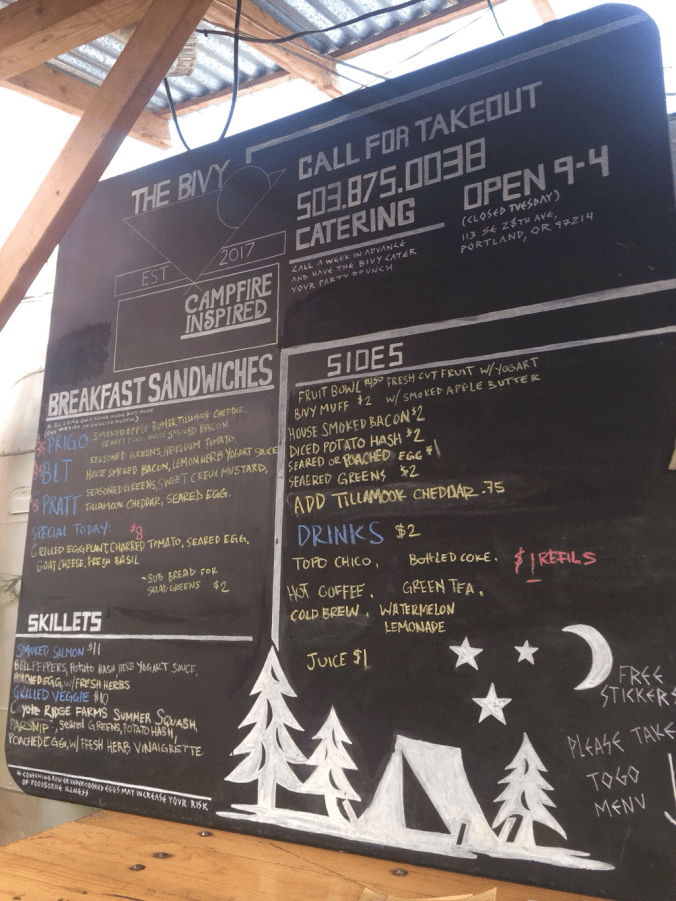 THE BIVY
EST 2017
CAMPFIRE
INSPIRED
CALL FOR TAKEOUT
503.875.0038
CATERING
CALL A WEEK IN ADVANCE
AND HAVE THE BIVY CATER
YOUR PARTY BRUNCH
OPEN 9-4
(CLOSED TUESDAY)
113 SE 28TH AVE,
PORTLAND, OR 97214
BREAKFAST SANDWICHES
PRIGO SMOKED APPLE BUTTER, TILLAMOOK CHEDDAR,
SEARED EGG, HOUSE SMOKED BACON
BLT SEASONED GREENS, HEIRLOOM TOMATO,
HOUSE SMOKED BACON, LEMON HERB YOGART SAUCE
PRATT SEASONED GREENS, SWEET CREEK MUSTARD,
TILLAMOOK CHEDDAR, SEARED EGG.
SPECIAL TODAY: $8
GRILLED EGGPLANT, CHARRED TOMATO, SEARED EGG,
GOAT CHEESE, FRESH BASIL
-SUB BREAD FOR
SALAD GREENS $2
SKILLETS
SMOKED SALMON $11
BELL PEPPERS, POTATO HASH, HERB YOGART SAUCE,
POACHED EGG, W/ FRESH HERBS
GRILLED VEGGIE $10
COYOTE RIDGE FARMS SUMMER SQUASH,
PARSNIP, SEARED GREENS, POTATO HASH,
POACHED EGG, W/ FRESH HERB VINAIGRETTE
* CONSUMING RAW OR UNDERCOOKED EGGS MAY INCREASE YOUR RISK
OF FOODBORNE ILLNESS
SIDES
FRUIT BOWL $4.50 FRESH CUT FRUIT W/ YOGART
BIVY MUFF $2 W/ SMOKED APPLE BUTTER
HOUSE SMOKED BACON $2
DICED POTATO HASH $2
SEARED OR POACHED EGG $1
SEARED GREENS $2
ADD TILLAMOOK CHEDDAR .75
DRINKS $2
TOPO CHICO, BOTTLED COKE. $1 REFILS
HOT COFFEE, GREEN TEA,
COLD BREW, WATERMELON
LEMONADE
JUICE $1
FREE
STICKERS
PLEASE TAKE
TOGO
MENU